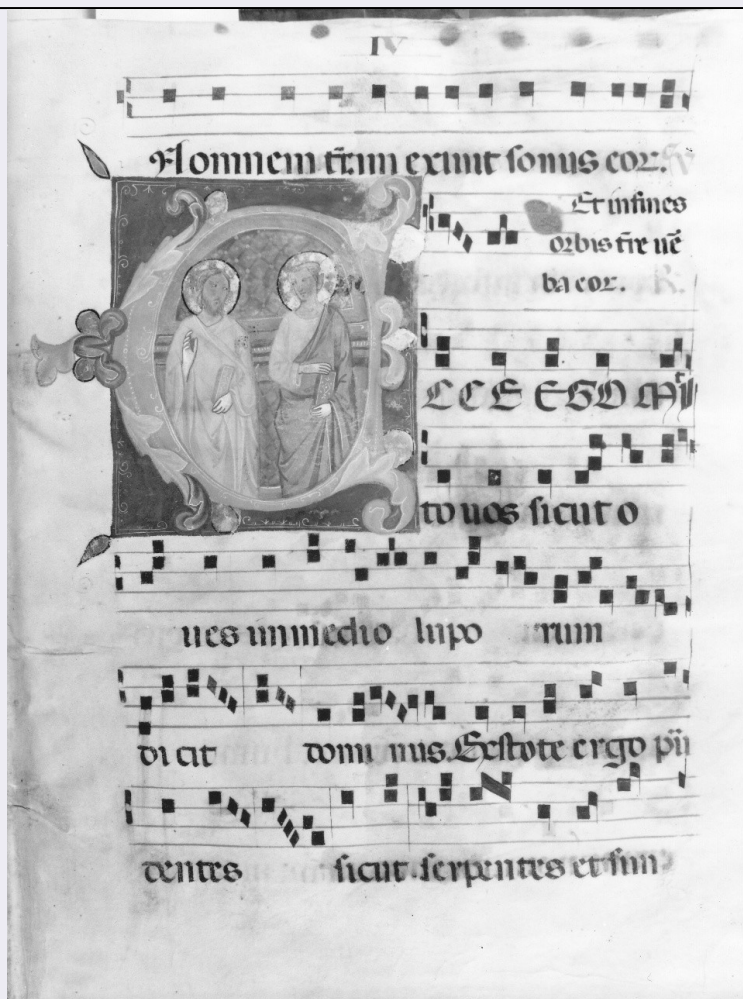 IV
In omnem tram exiuit sonus eor.
Et in fines
orbis tre ue
ba eor.
ECCE EGO MI
to uos sicut o
ues in medio lupo rum
di cit dominus. Estote ergo pru
dentes sicut serpentes et sim